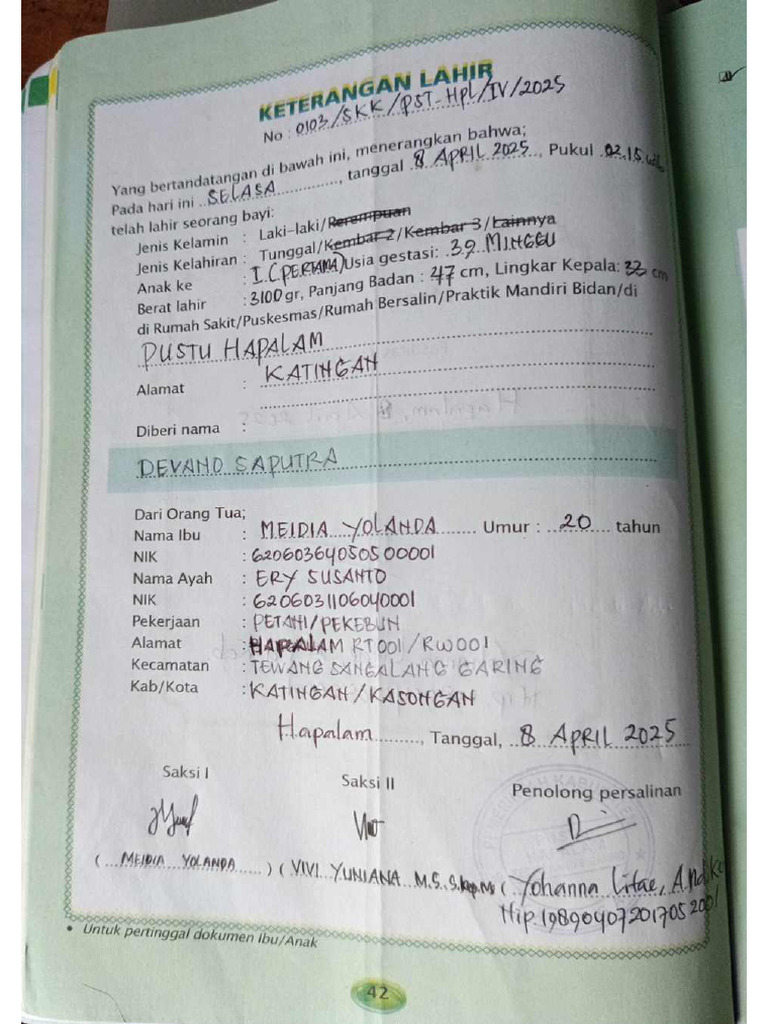 KETERANGAN LAHIR
No : 0103/SKK/PST-HPL/IV/2025
Yang bertandatangan di bawah ini, menerangkan bahwa;
Pada hari ini ..SELASA..............., tanggal .8 APRIL 2025., Pukul .02.15.wib.
telah lahir seorang bayi:
Jenis Kelamin : Laki-laki/Perempuan
Jenis Kelahiran : Tunggal/Kembar 2/Kembar 3/Lainnya
Anak ke : I (PERTAMA) Usia gestasi: 39 MINGGU
Berat lahir : 3100 gr, Panjang Badan : 47 cm, Lingkar Kepala: 33 cm
di Rumah Sakit/Puskesmas/Rumah Bersalin/Praktik Mandiri Bidan/di
PUSTU HAPALAM
Alamat : KATINGAN
Diberi nama :
DEVANO SAPUTRA
Dari Orang Tua;
Nama Ibu : MEIDIA YOLANDA Umur : 20 tahun
NIK : 6206036405050001
Nama Ayah : ERY SUSANTO
NIK : 6206031106040001
Pekerjaan : PETANI/PEKEBUN
Alamat : HAPALAM RT001/RW001
Kecamatan : TEWANG SANGALANG GARING
Kab/Kota : KATINGAN/KASONGAN
Hapalam........., Tanggal, ..8 APRIL 2025
Saksi I Saksi II Penolong persalinan
(...MEIDIA YOLANDA......) (VIVI YUNIANA M.S. S.Kep.Ns (Yohanna Litae, A.Md.Ke
Nip.198904072017052001
• Untuk pertinggal dokumen Ibu/Anak
42